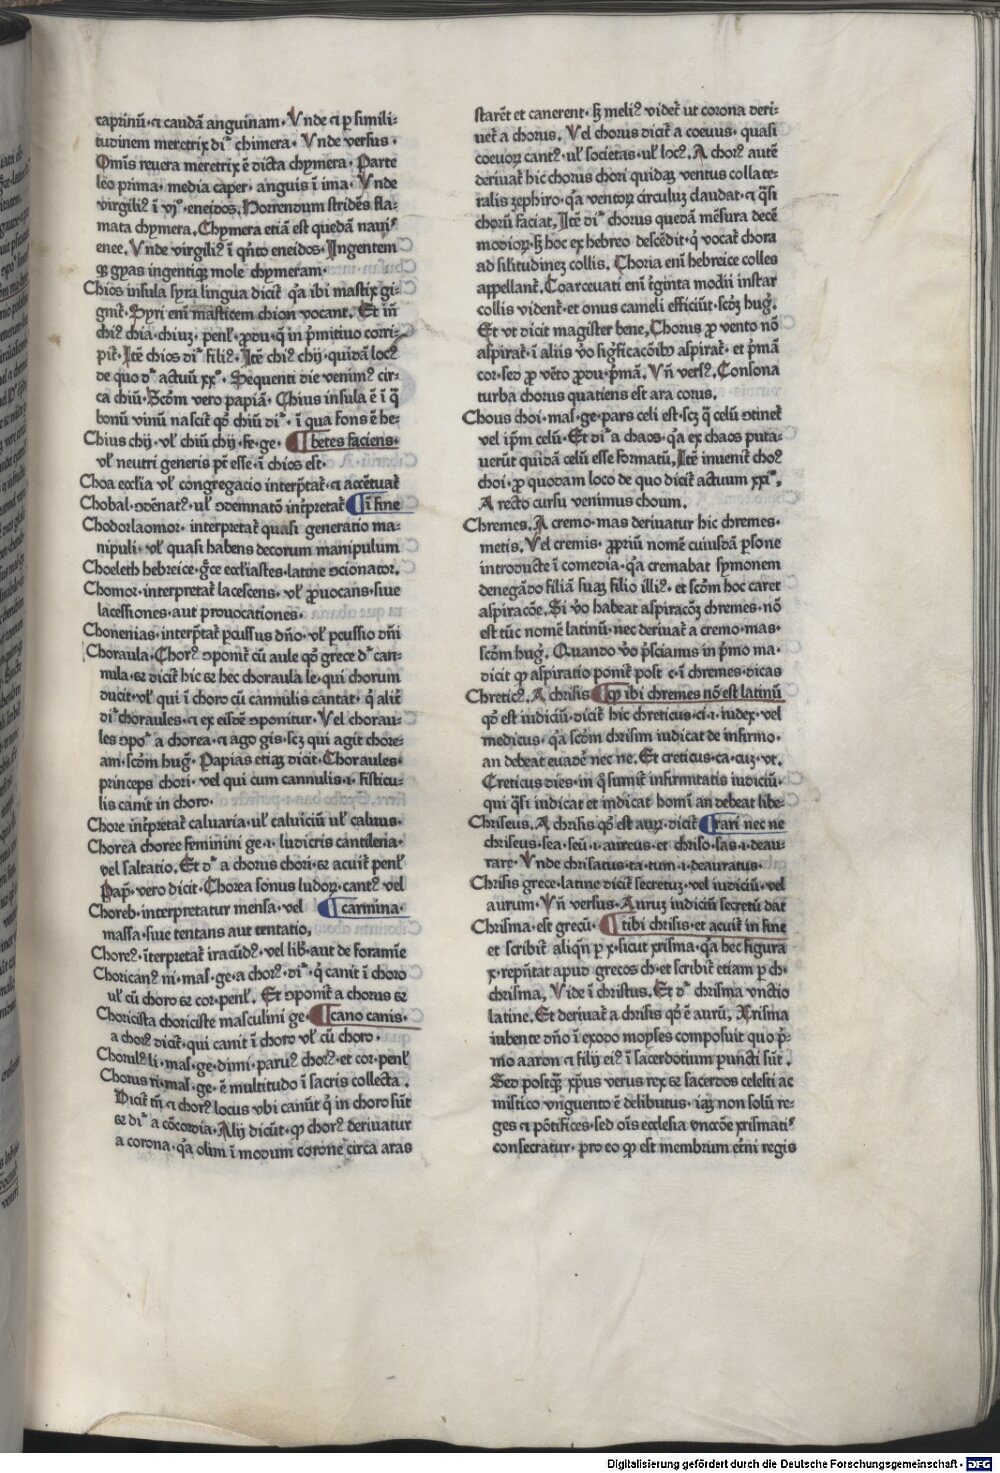 caprinū· ⁊ caudā anguinam· Vnde ⁊ ꝑ simili⸗
tudinem meretrix di᷒ chimera· Vnde versus·
Om̄is reuera meretrix ē dicta chymera· Parte
leo prima· media caper· anguis ī ima· Vnde
virgiliꝰ ī vjº· eneidos. Horrendum stridēs fla⸗
mata chymera. Chymera etiā est quedā naui᷒
enee. Vnde virgiliꝰ ī qn̄to eneidos· Ingentem
qꝫ gyas ingentiqꝫ mole chymeram·
Chios insula syra lingua dicit̄ qꝛa ibi mastix gi⸗
gnit̄· Syri eni masticem chion vocant. Et in̄
chiꝰ chia· chiuꝫ· penl̄· ꝓdu· q̄ in p̄mitiuo corri⸗
pit̄· Itē chios di᷒ filiꝰ· Itē chiꝰ chij· quidā locꝰ
de quo d᷒ actuū xxº· Sequenti die venimꝰ cir⸗
ca chiū· Scōm vero papiā· Chius insula ē ī q̄
bonū vinū nascit̄ qō chiū di᷒· ī qua fons ē he⸗
Chius chij· vl̄ chiū chij· fe· ge· ¶ betes faciens·
vl̄ neutri generis pt̄ esse· ī chios est·
Choa ecclīa vl̄ congregacio interp̄tat̄· ⁊ accētuat̄
Chobal· ↄdēnatꝰ· ul̄ ↄdemnatō int̄pretat̄ ¶ ī fine
Chodorlaomor· interpretat̄ quasi generatio ma⸗
nipuli· vl̄ quasi habens decorum manipulum
Choeleth hebreice· grece ecclīastes· latine ↄcionator.
Chomor· interpretat̄ lacescens· vl̄ ꝓuocans· siue
lacessiones· aut prouocationes·
Chonenias· interp̄tat̄ pcussus dn̄o· vl̄ pcussio dn̄i
Choraula· Chorꝰ ↄponit̄ cū aule qō grece d᷒ can⸗
nula· ⁊ dicit̄ hic ⁊ hec choraula le· qui chorum
ducit· vl̄ qui ī choro cū cannulis cantat· q̄ alit̄
di᷒ choraules· ⁊ ex eisdē ↄponitur· Vel chorau⸗
les ↄpo᷒ a chorea· ⁊ ago gis· scꝫ qui agit chore⸗
am· scōm hug̃. Papias etiaꝫ dicit· Choraules·
princeps chori· vel qui cum cannulis· ı· fisticu⸗
lis canit in choro·
Chore int̄pretat̄ caluaria· ul̄ caluiciū ul̄ caluus·
Chorea choree feminini ge· ı· ludicris cantilena·
vel saltatio. Et d᷒ a chorus chori· ⁊ acuit̄ penl̄
Pap̄· vero dicit· Chorea sonus ludoꝝ· cantꝰ vel
Choreb· interpretatur mensa· vel ¶ carmina·
massa· siue tentans aut tentatio.
Choreꝰ· īterpretat̄ iracūdꝰ· vel libꝰ· aut de foramīe
Choricanꝰ ni· mas· ge· a chorꝰ· di᷒· q̄ canit ī choro
ul̄ cū choro ⁊ cor· penl̄. Et ↄponit̄ a chorus ⁊
Choricista choriciste masculini ge· ¶ cano canis·
a chorꝰ dicit̄· qui canit ī choro vl̄ cū choro·
Chorulꝰ li· mas· ge· dimi· paruꝰ chorꝰ· et cor· penl̄
Chorus ri· mas· ge· ē multitudo ī sacris collecta.
Dicit̄ tn̄ ⁊ chorꝰ locus vbi canūt q̄ in choro sūt
⁊ di᷒ a cōcordia. Alij dicūt· ꝙ chorꝰ deriuatur
a corona· qꝛa olim ī modum corone circa aras
starēt et canerent· sꝫ meliꝰ videt̄ ut corona deri⸗
uet̄ a chorus. Vel chorus dicit̄ a coeuus· quasi
coeuoꝝ cantꝰ· ul̄ societas· ul̄ locꝰ. A chorꝰ autē
deriuat̄ hic chorus chori quidaꝫ ventus collate⸗
ralis zephiro· qꝛa ventoꝝ circuluꝫ claudat· ⁊ qͣsi
chorū faciat, Itē di᷒ chorus quedā mēsura decē
modioꝝ· sꝫ hoc ex hebreo descēdit· q̄ vocat̄ chora
ad silitudineꝫ collis. Choria enī hebreice colles
appellant̄. Coarceuati enī t̄ginta modii instar
collis vident̄· et onus cameli efficiūt· scōꝫ hug̃.
Et vt dicit magister bene, Chorus ꝓ vento nō
aspirat̄· ī aliis v̄o sig̃ficacōibꝫ aspirat̄· et p̄mā
cor· sed ꝓ vēto ꝓdu· p̄mā. Vn̄ versꝰ, Consona
turba chorus quatiens est ara corus.
Chous choi· mas· ge· pars celi est· scꝫ q̄ celū ↄtinet
vel ip̄m celū· Et di᷒ a chaos· qꝛa ex chaos puta⸗
uerūt quidā celū esse formatū, Itē inuenit̄ choꝰ
choi· ꝓ quodam loco de quo dicit̄ actuum xxiº.
A recto cursu venimus choum.
Chremes. A cremo· mas deriuatur hic chremes·
metis. Vel cremis· ꝓpriū nomē cuiusdā psone
introducte ī comedia· qꝛa cremabat symonem
denegādo filiā suaꝫ filio illiꝰ· et scōm hoc caret
aspiracōe. Si v̄o habeat aspiracōꝫ chremes· nō
est tūc nomē latinū· nec deriuat̄ a cremo· mas·
scōm hug̃. Quando v̄o p̄scianus in p̄mo ma·
dicit ꝙ aspiratio ponit̄ post c· ī chremes· dicas
Chreticꝰ. A chrisis ¶ ꝙ ibi chremes nō est latinū
qō est iudiciū· dicit̄ hic chreticus· ci· ı· iudex· vel
medicus· qꝛa scōm chrisim iudicat de infirmo·
an debeat euadē nec ne. Et creticus· ca· cuꝫ· vt·
Creticus dies· in q̄ sumit̄ infirmitatis iudiciū·
qui qͣsi iudicat et indicat homī an debeat libe⸗
Chriseus. A chrisis qō est auꝝ· dicit̄ ¶ rari nec ne
chriseus· sea· seū· ı· aureus· et chriso· sas· ı· deau⸗
rare· Vnde chrisatus· ta· tum· ı· deauratus·
Chrisis grece· latine dicit̄ secretuꝫ· vel iudiciū· vel
aurum· Vn̄ versus. Auruꝫ iudiciū secretū dat
Chrisma· est grecū· ¶ tibi chrisis· et acuit̄ in fine
et scribit̄ aliqn̄ ꝑ x· sicut xrisma· qꝛa hec figura
x· repn̄tat apud grecos ch· et scribit̄ etiam ꝑ ch·
chrisma, Vide ī christus. Et d᷒ chrisma vnctio
latine. Et deriuat̄ a chrisis qō ē aurū, Xrisma
iubente dn̄o ī exodo moyses composuit quo p̄⸗
mo aaron ⁊ filij eiꝰ ī sacerdotium puncti sūt.
Sed postqꝫ xp̄us verus rex ⁊ sacerdos celesti ac
mistico vnguento ē delibutus· iaꝫ non solū re⸗
ges ⁊ pōtifices· sed oīs ecclesia vnccōe xrismati᷒
consecratur· pro eo ꝙ est membrum et̄ni regis
Digitalisierung gefördert durch die Deutsche Forschungsgemeinschaft - DFG